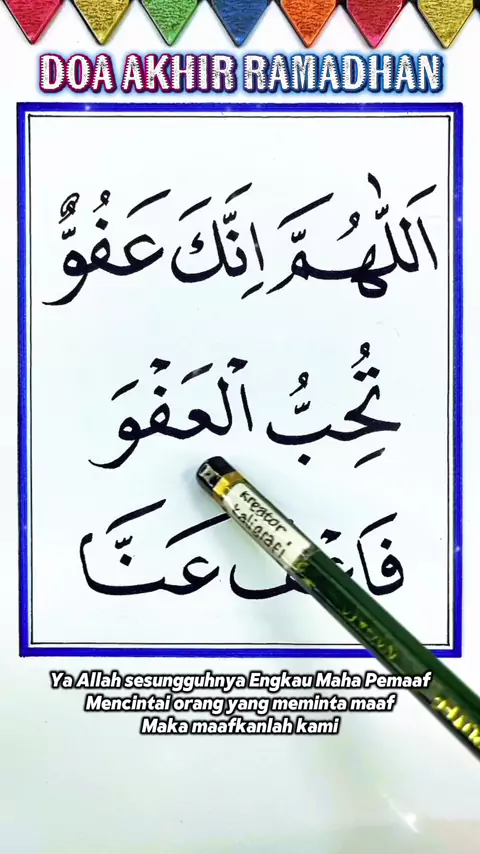 DOA AKHIR RAMADHAN
اَللّٰهُمَّ اِنَّكَ عَفُوٌّ
تُحِبُّ الْعَفْوَ
فَاعْفُ عَنَّا
Kreator
kaligrafi
Ya Allah sesungguhnya Engkau Maha Pemaaf
Mencintai orang yang meminta maaf
Maka maafkanlah kami